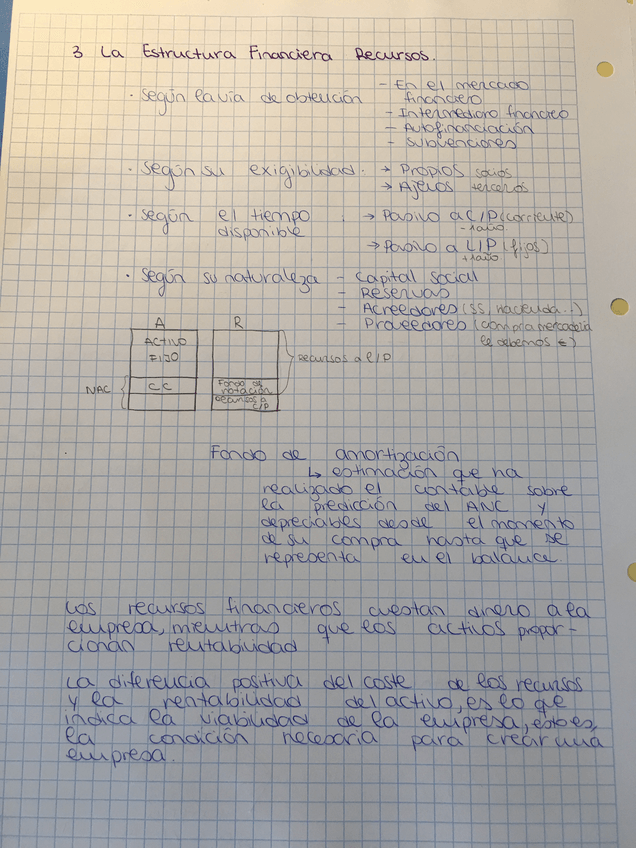 3 La Estructura Financiera Recursos.
· según la vía de obtención
- En el mercado
financiero
- Intermediario financiero
- Autofinanciación
- Subvenciones
· según su exigibilidad: → Propios socios
→ Ajenos terceros
· según el tiempo
disponible
: → Pasivo a C/P (corriente)
- 1 año
→ Pasivo a L/P (fijos)
+ 1 año
· según su naturaleza - Capital social
- Reservas
- Acreedores (SS, hacienda..)
- Proveedores (compra mercadería
le debemos €)
A R
ACTIVO
FIJO
recursos a l/P
NAC
CC
Fondo de
rotación
recursos a
C/P
Fondo de amortización
↳ estimación que ha
realizado el contable sobre
la predicción del ANC y
depreciables desde el momento
de su compra hasta que se
representa en el balance.
Los recursos financieros cuestan dinero a la
empresa, mientras que los activos propor-
cionan rentabilidad
La diferencia positiva del coste de los recursos
y la rentabilidad del activo, es lo que
indica la viabilidad de la empresa, esto es,
la condición necesaria para crear una
empresa.